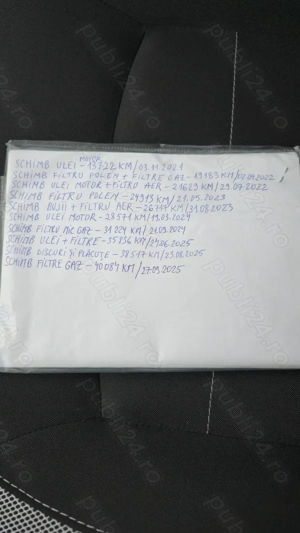 SCHIMB ULEI MOTOR - 13722 KM/03.11.2021
SCHIMB FILTRU POLEN + FILTRE GAZ - 19183 KM/02.04.2022
SCHIMB ULEI MOTOR + FILTRU AER - 21623 KM/29.07.2022
SCHIMB FILTRU POLEN - 24913 KM/21.05.2023
SCHIMB BUJII + FILTRU AER - 26777 KM/31.08.2023
SCHIMB ULEI MOTOR - 28571 KM/19.03.2024
SCHIMB FILTRU MIC GAZ - 31224 KM/21.09.2024
SCHIMB ULEI + FILTRE - 35856 KM/24.06.2025
SCHIMB DISCURI ȘI PLACUTE - 38517 KM/23.08.2025
SCHIMB FILTRE GAZ - 40084 KM/27.09.2025
publi24.ro